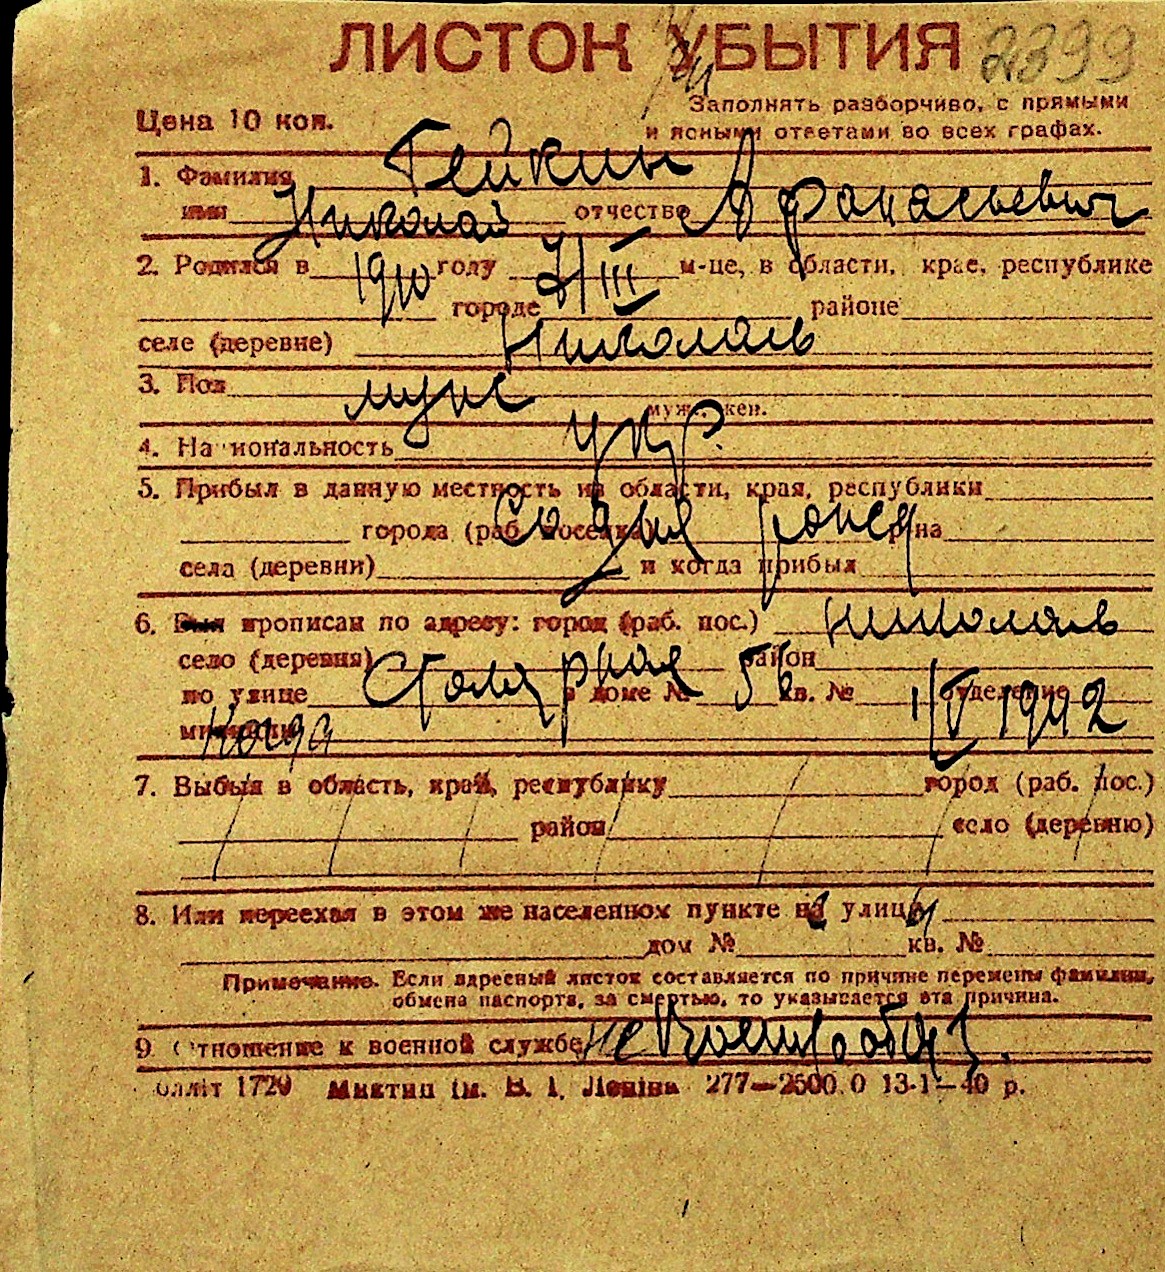 ЛИСТОК УБЫТИЯ 2399
Цена 10 коп.
Заполнять разборчиво, с прямыми
и ясными ответами во всех графах.
1. Фамилия Гейкин
имя Николай отчество Афанасьевич
2. Родился в 1910 году 7/III м-це, в области, крае, республике
городе районе
селе (деревне) Николаев
3. Пол муж
муж., жен.
4. Национальность укр.
5. Прибыл в данную местность из области, края, республики
города (раб. поселка) р-на
села (деревни) и когда прибыл
6. Был прописан по адресу: город (раб. пос.) Николаев
село (деревня) район
по улице Столярная в доме № 56 кв. № отделение
милиции Когда 1/IV 1942
7. Выбыл в область, край, республику город (раб. пос.)
район село (деревню)
8. Или переехал в этом же населенном пункте на улицу
дом № кв. №
Примечание. Если адресный листок составляется по причине перемены фамилии,
обмена паспорта, за смертью, то указывается эта причина.
9. Отношение к военной службе невоеннообяз.
1720 Миктип ім. В. І. Леніна 277—2500.0 13-1—40 р.